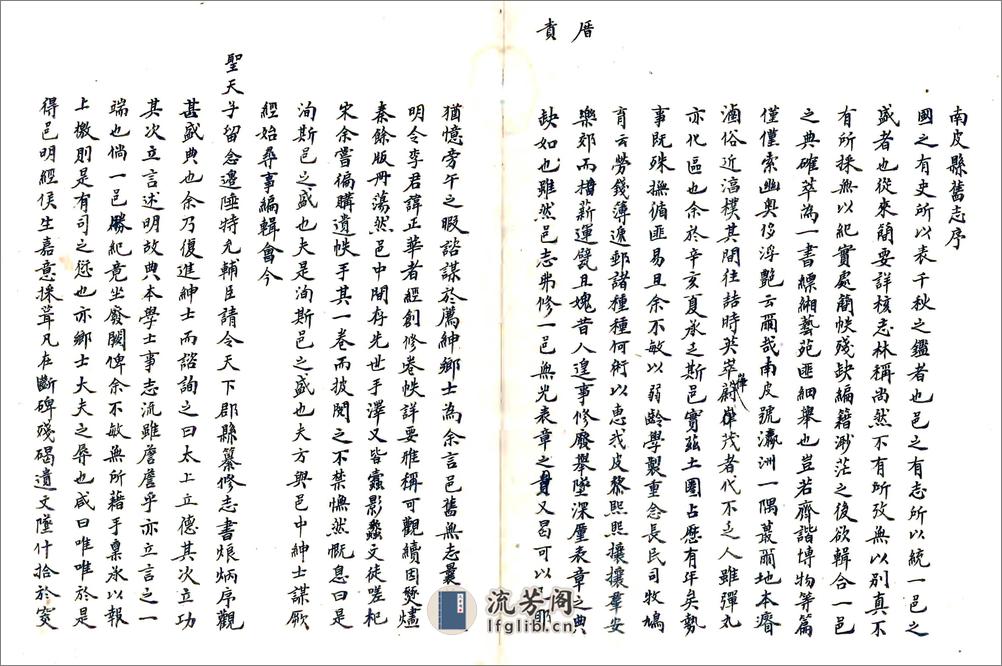 厝責
南皮縣舊志序
國之有史所以表千秋之鑑者也邑之有志所以統一邑之
盛者也從來簡要詳核志林稱尚然不有所攷無以別真不
有所採無以紀實處簡帙殘缺編籍渺茫之後欲輯合一邑
之典確萃為一書縹緗藝苑匪細舉也豈若齊諧博物等篇
僅僅索幽奧侈浮艷云爾哉南皮號瀛洲一隅蕞爾地本濟
滷俗近淳樸其間往詰時英萃蔚華茂者代不乏人雖彈丸
亦化區也余於辛亥夏承乏斯邑實茲土圖占歷有年矣勢
事既殊撫循匪易且余不敏以弱齡學製重念長民司牧鳩
育云勞錢薄遞郵諸種種何術以惠我皮黎熙熙攘攘羣安
樂郊而積薪運甓且媿昔人遑事修廢舉墜深厪表章之典
缺如也雖然邑志弗修一邑無光表章之責又曷可以卸
猶憶旁午之暇諮謀於薦紳鄉士為余言邑舊無志曩
明令李君諱正華者經創修卷帙詳要雅稱可觀續因燹燼
秦餘版冊蕩然邑中間存先世手澤又皆蠹影蟫文徒嗟杞
宋余嘗徧購遺帙手其一卷而披閱之不禁憮然慨息曰是
洵斯邑之盛也夫是洵斯邑之盛也夫方與邑中紳士謀厥
經始尋事編輯會今
聖天子留念邊陲特允輔臣請令天下郡縣纂修志書烺炳序觀
甚盛典也余乃復進紳士而諮詢之曰太上立德其次立功
其次立言述明故典本學士事志流雖詹詹乎亦立言之一
端也倘一邑勝紀竟坐廢闕俾余不敏無所藉手稟承以報
上檄則是有司之愆也亦鄉士大夫之辱也咸曰唯唯於是
得邑明經侯生嘉意採葺凡在斷碑殘碣遺文墜什拾於窔
流芳阁
lfglib.cn